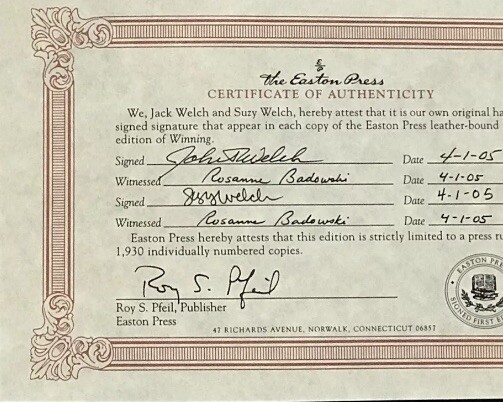 the Easton Press
CERTIFICATE OF AUTHENTICITY
We, Jack Welch and Suzy Welch, hereby attest that it is our own original ha
signed signature that appear in each copy of the Easton Press leather-bound
edition of Winning.
Signed John F Welch Date 4-1-05
Witnessed Rosanne Badowski Date 4-1-05
Signed Suzy Welch Date 4-1-05
Witnessed Rosanne Badowski Date 4-1-05
Easton Press hereby attests that this edition is strictly limited to a press ru
1,930 individually numbered copies.
Roy S. Pfeil
Roy S. Pfeil, Publisher
Easton Press
47 RICHARDS AVENUE, NORWALK, CONNECTICUT 06857
EASTON PRE
SIGNED FIRST E